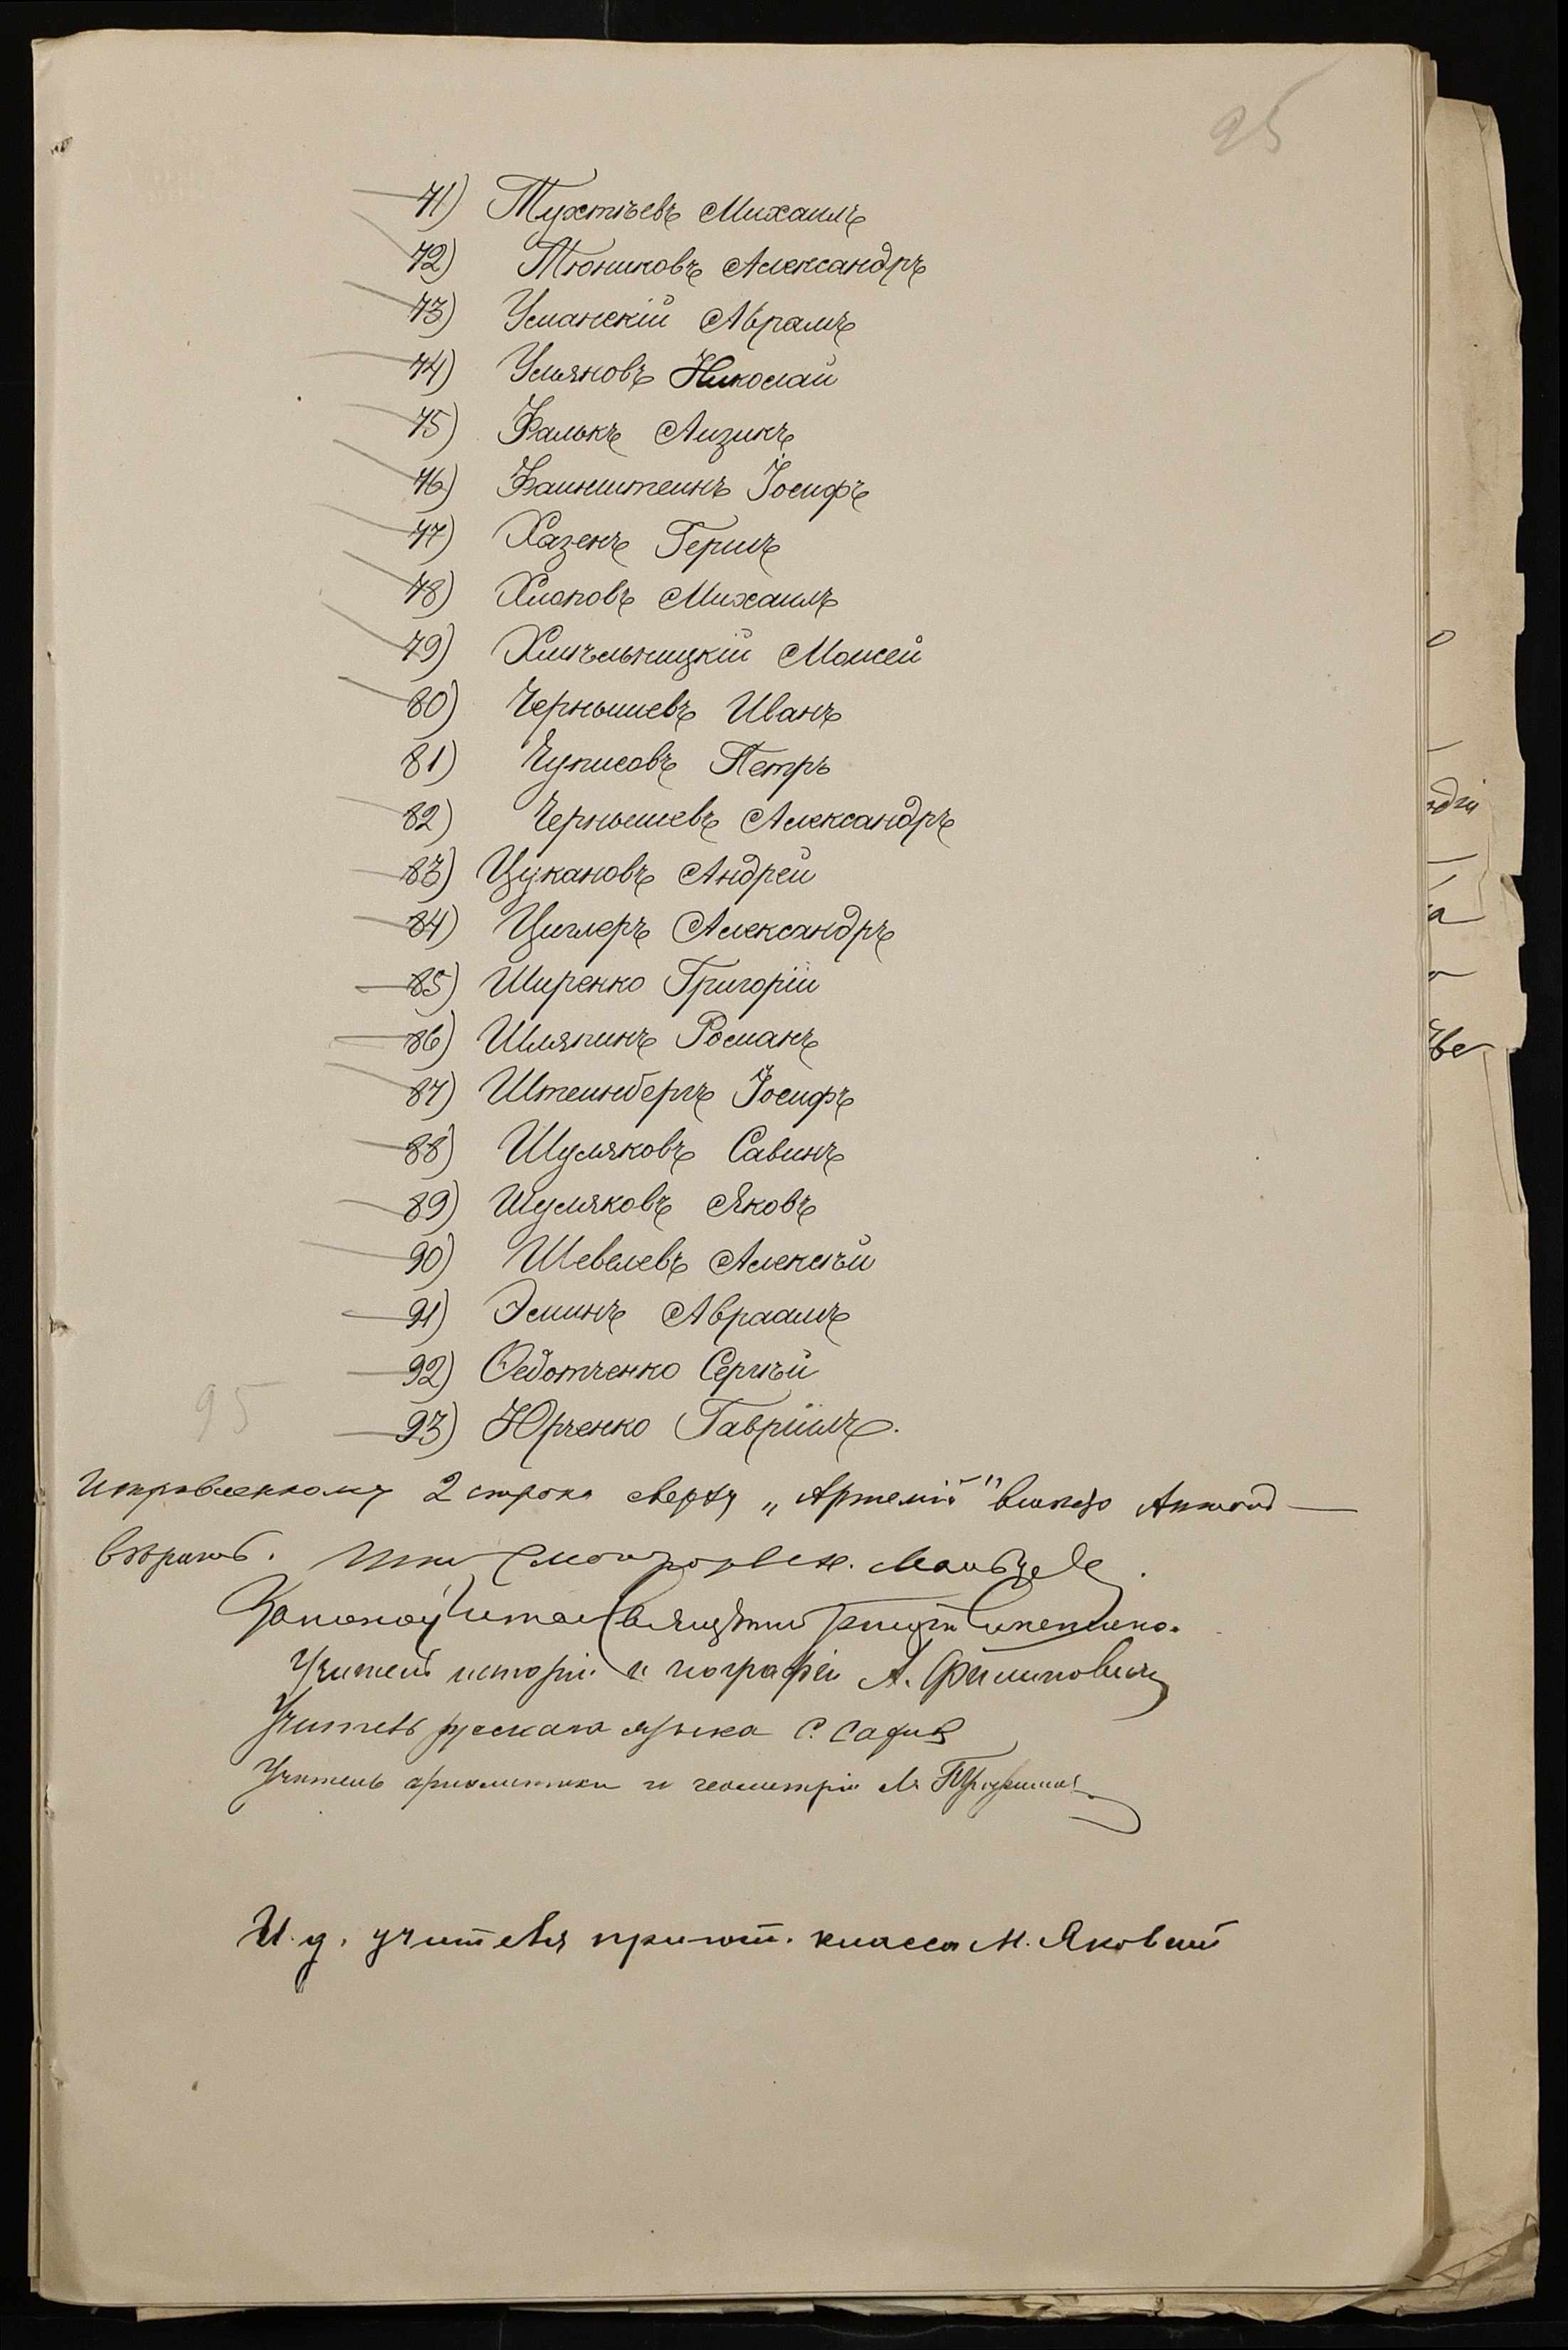 95
71) Тухтѣевъ Михаилъ
72) Тюниковъ Александръ
73) Уманскій Абрамъ
74) Ульяновъ Николай
75) Фалькъ Айзикъ
76) Файнштейнъ Іосифъ
77) Хазенъ Гершъ
78) Хлоповъ Михаилъ
79) Хмѣльницкій Моисей
80) Чернышевъ Иванъ
81) Чуписовъ Петръ
82) Чернышевъ Александръ
83) Цукановъ Андрей
84) Циглеръ Александръ
85) Ширенко Григорій
86) Шляпинъ Романъ
87) Штейнбергъ Іосифъ
88) Шуляковъ Савинъ
89) Шуляковъ Яковъ
90) Шевелевъ Алексѣй
91) Эминъ Авраамъ
92) Ѳедотченко Сергѣй
93) Юрченко Гавріилъ.
95
Исправленному 2 строка сверху „Артемій" вмѣсто
вѣрить.
Учитель исторіи и географіи А. Филиповичъ
Учитель русскаго языка С.
Учитель ариѳметики и геометріи
И. д. учителя пригот. класса М. Яковкин